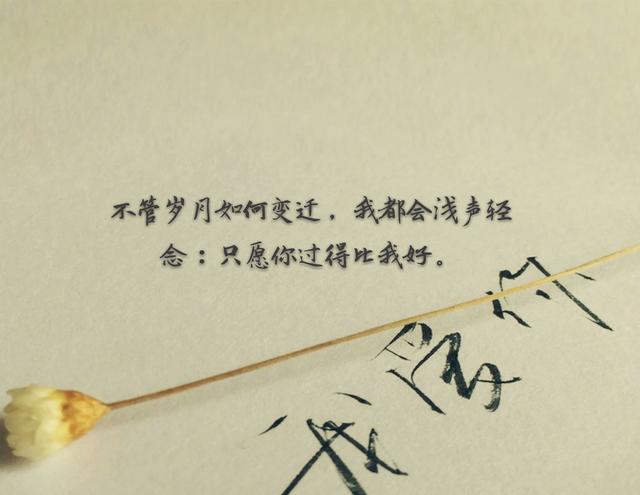 不管岁月如何变迁，我都会浅声轻
念：只愿你过得比我好。